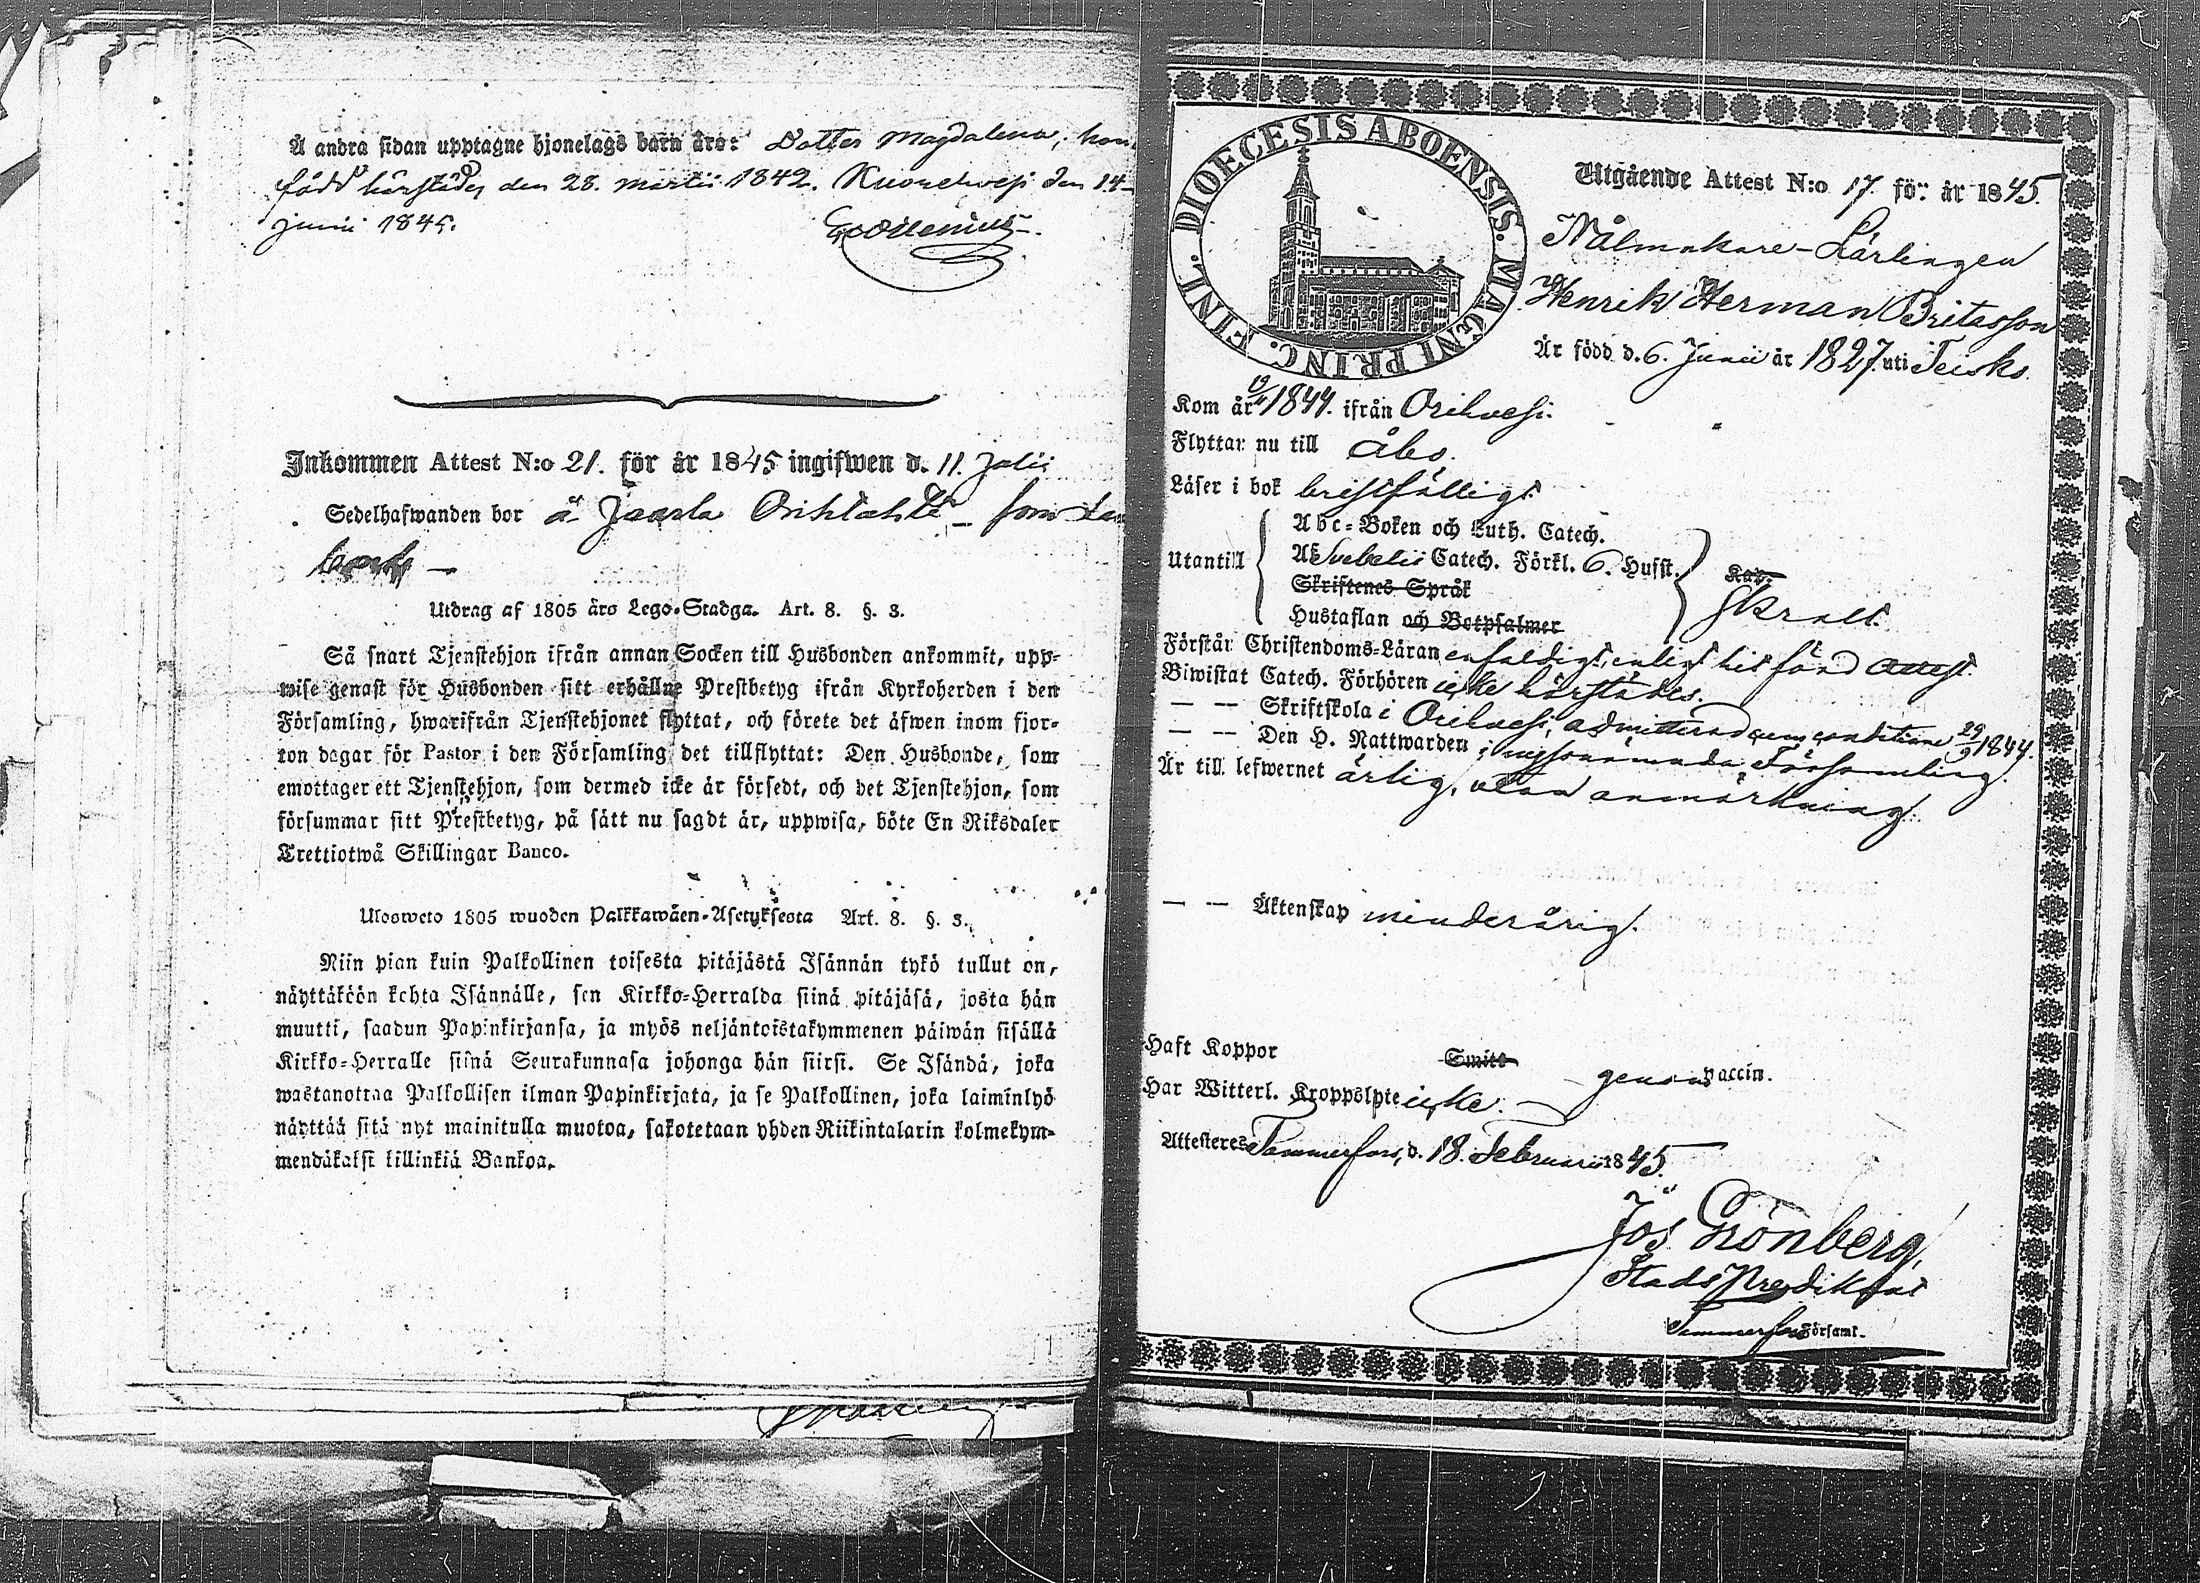 Å andra sidan upptagne hjonelags barn äro: Dotter Magdalena, hon
född härstädes den 28. martii 1842. Kuorehvesi den 14
junii 1845.
Inkommen Attest N:o 21. för år 1845 ingifwen d. 11. Julii
Sedelhafwanden bor å Jaarla
Utdrag af 1805 års Lego-Stadga. Art. 8. §. 3.
Så snart Tjenstehjon ifrån annan Socken till Husbonden ankommit, upp-
wise genast för Husbonden sitt erhållne Prestbetyg ifrån Kyrkoherden i den
Församling, hwarifrån Tjenstehjonet flyttat, och förete det äfwen inom fjor-
ton dagar för Pastor i den Församling det tillflyttat: Den Husbonde, som
emottager ett Tjenstehjon, som dermed icke är försedt, och det Tjenstehjon, som
försummar sitt Prestbetyg, på sätt nu sagdt är, uppwisa, böte En Riksdaler
Trettiotwå Skillingar Banco.
Ulosweto 1805 wuoden Palkkawäen-Asetyksesta Art. 8. §. 3.
Niin pian kuin Palkollinen toisesta pitäjästä Isännän tykö tullut on,
näyttäköön kohta Isännälle, sen Kirkko-Herralda siinä pitäjäsä, josta hän
muutti, saadun Papinkirjansa, ja myös neljäntoistakymmenen päiwän sisällä
Kirkko-Herralle siinä Seurakunnasa johonga hän siirsi. Se Isändä, joka
wastanottaa Palkollisen ilman Papinkirjata, ja se Palkollinen, joka laiminlyö
näyttää sitä nyt mainitulla muotoa, sakotetaan yhden Riikintalarin kolmekym-
mendäkaksi killinkiä Bankoa.
DIOECESIS ABOENSIS. MAGNI PRINC. FINL.
Utgående Attest N:o 17. för år 1845.
Nålmakare-Lärlingen
Henrik Herman Britasson
Är född d. 6. Junii år 1827. uti Teisko.
Kom år 1844. ifrån Orihvesi.
Flyttar nu till Åbo.
Läser i bok bristfälligt
Utantill
Abc-Boken och Luth. Catech.
Af Svebelii Catech. Förkl. 6. Husst.
Skriftenes Språk
Hustaflan och Botpsalmer
Förstår Christendoms-Läran enfaldigt, enligt hit förd Attest.
Biwistat Catech. Förhören icke härstädes.
— — Skriftskola i Orihvesi, admitterad cum conditione 29/9 1844.
— — Den H. Nattwarden i nyssnämnda Församling.
Är till lefwernet ärlig, utan anmärkning.
— — Äktenskap minderårig.
Haft Koppor Smitt- genom vaccin.
Har Witterl. Kroppslyte icke.
Attesteres Tammerfors, d. 18. Februarii 1845.
Jos. Grönberg,
StadsPredikant
Tammerfors Församl.